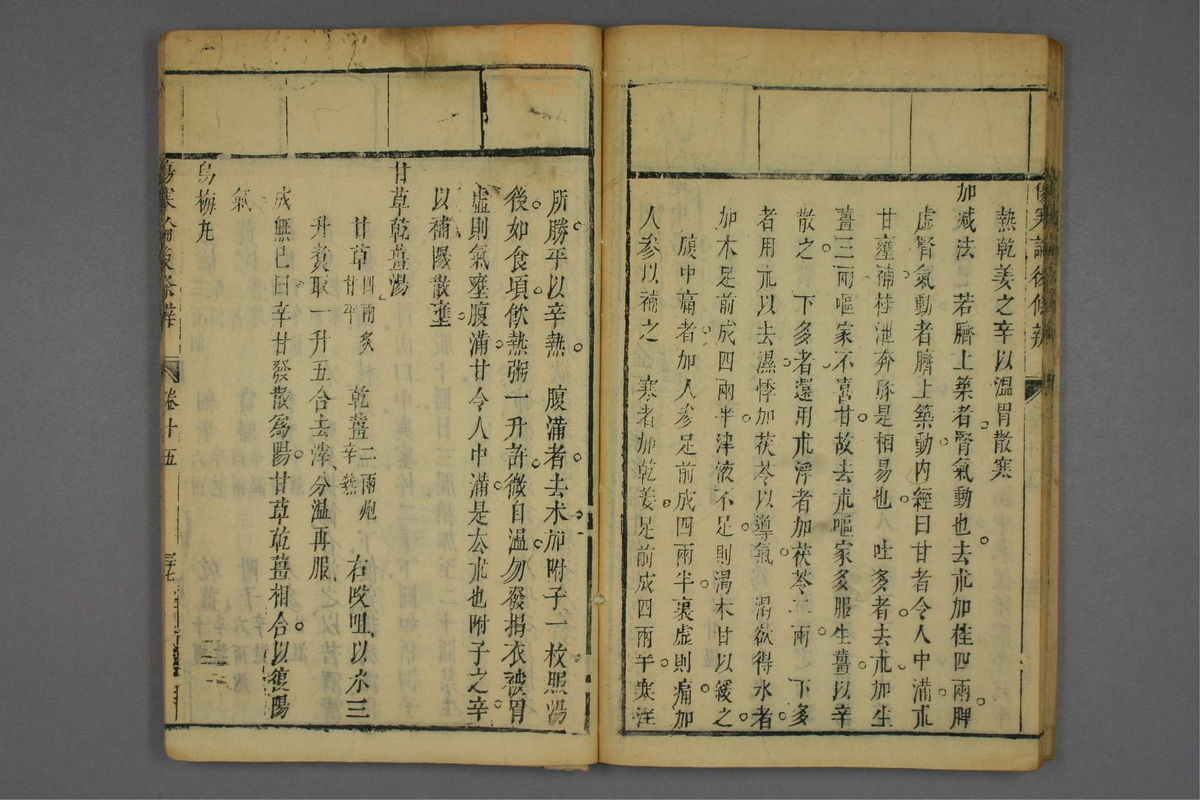 傷寒論後條辨
熱乾姜之辛以温胃散寒
加減法　若臍上築者腎氣動也去朮加桂四兩脾
虛腎氣動者臍上築動內經曰甘者令人中滿朮
甘壅補桂泄奔豚是相易也　吐多者去朮加生
薑三兩嘔家不喜甘故去朮嘔家多服生薑以辛
散之　下多者還用朮浮者加茯苓二兩　下多
者用朮以去濕悸加茯苓以導氣　渴欲得水者
加木足前成四兩半津液不足則渴木甘以緩之
腹中痛者加人參足前成四兩半裏虛則痛加
人參以補之　寒者加乾姜足前成四兩半寒淫
所勝平以辛熱　腹滿者去朮加附子一枚煕湯
後如食頃飲熱粥一升許微自溫勿發揭衣被胃
虛則氣壅腹滿甘令人中滿是去朮也附子之辛
以補陽散壅
甘草乾薑湯
甘草四兩炙甘平　乾薑二兩炮辛熱　右㕮咀以水三
升煑取一升五合去滓分溫再服
成無已曰辛甘發散爲陽甘草乾薑相合以復陽
氣
烏梅丸
傷寒論後條辨　卷十五